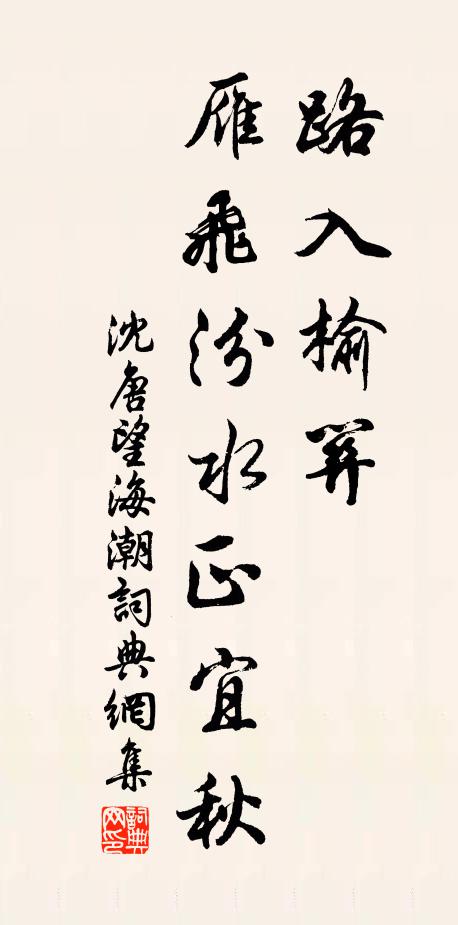 路入榆關
雁飛汾水正宜秋
沈唐望海潮詞典網集
詞典網印